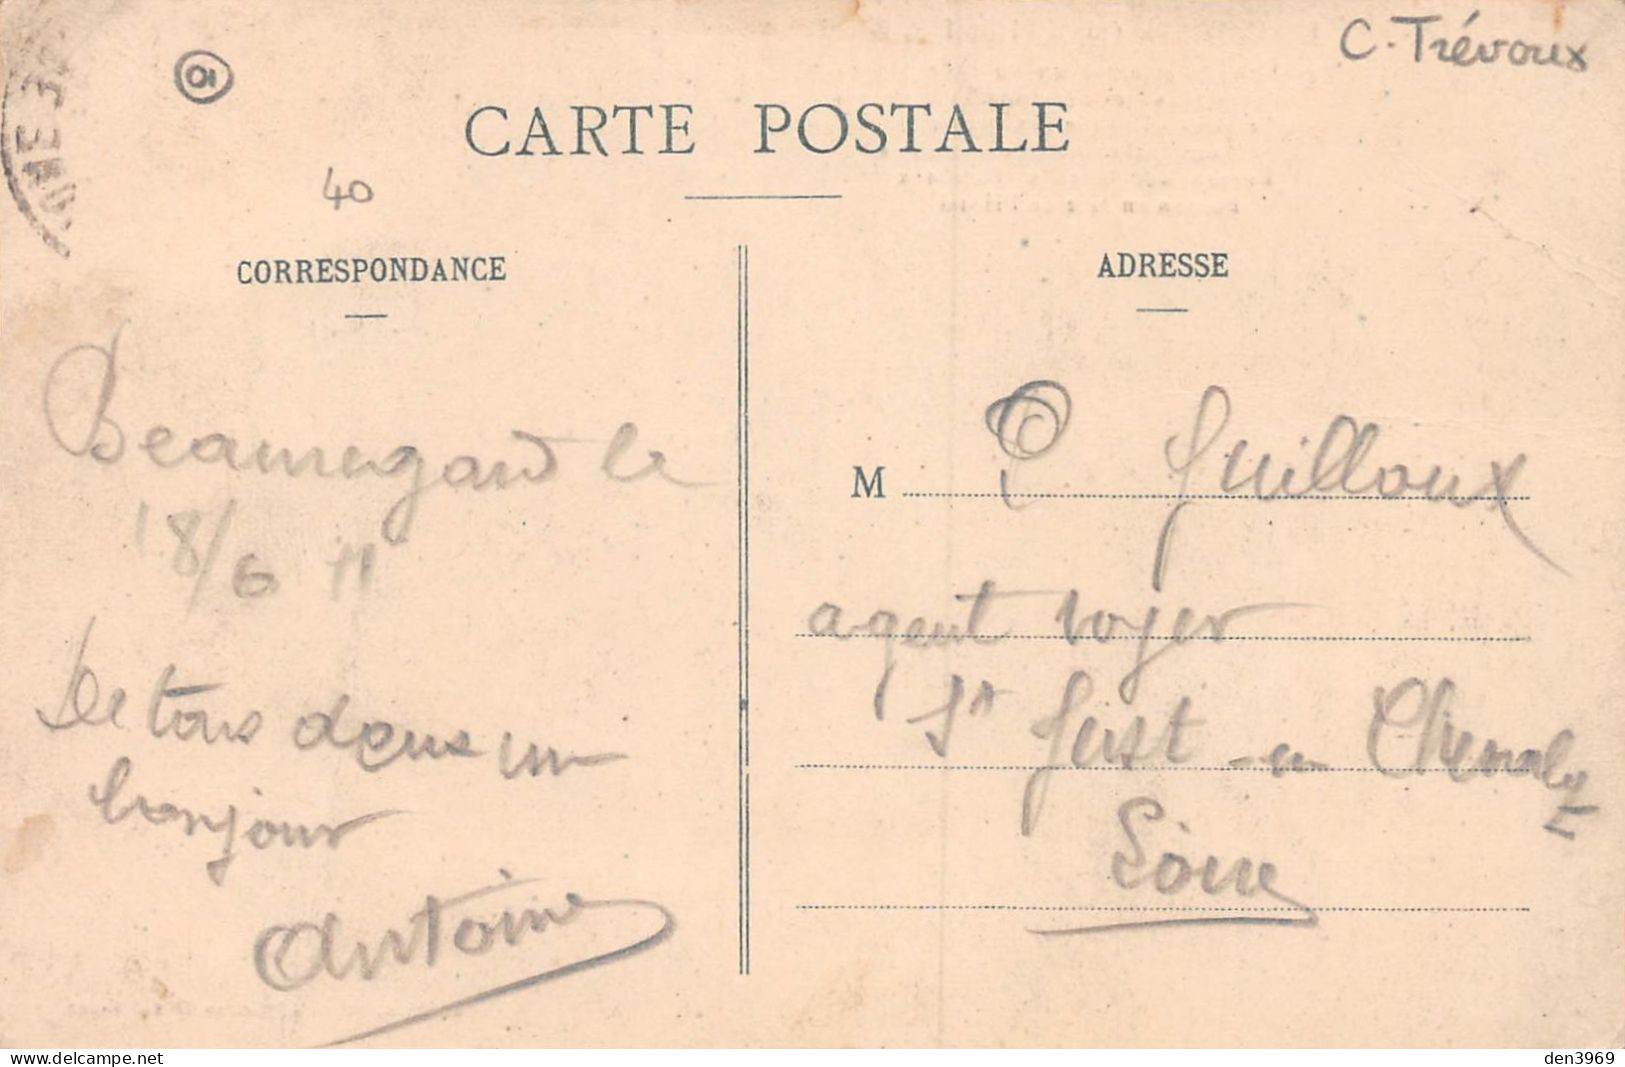 C. Trévoux
01
CARTE POSTALE
40
CORRESPONDANCE
Beauregard le
18/6 11
De tous deux un
bonjour
Antoine
ADRESSE
M P Guilloux
agent voyer
St Just-en Chevalet
Loire
delcampe.net
den3969